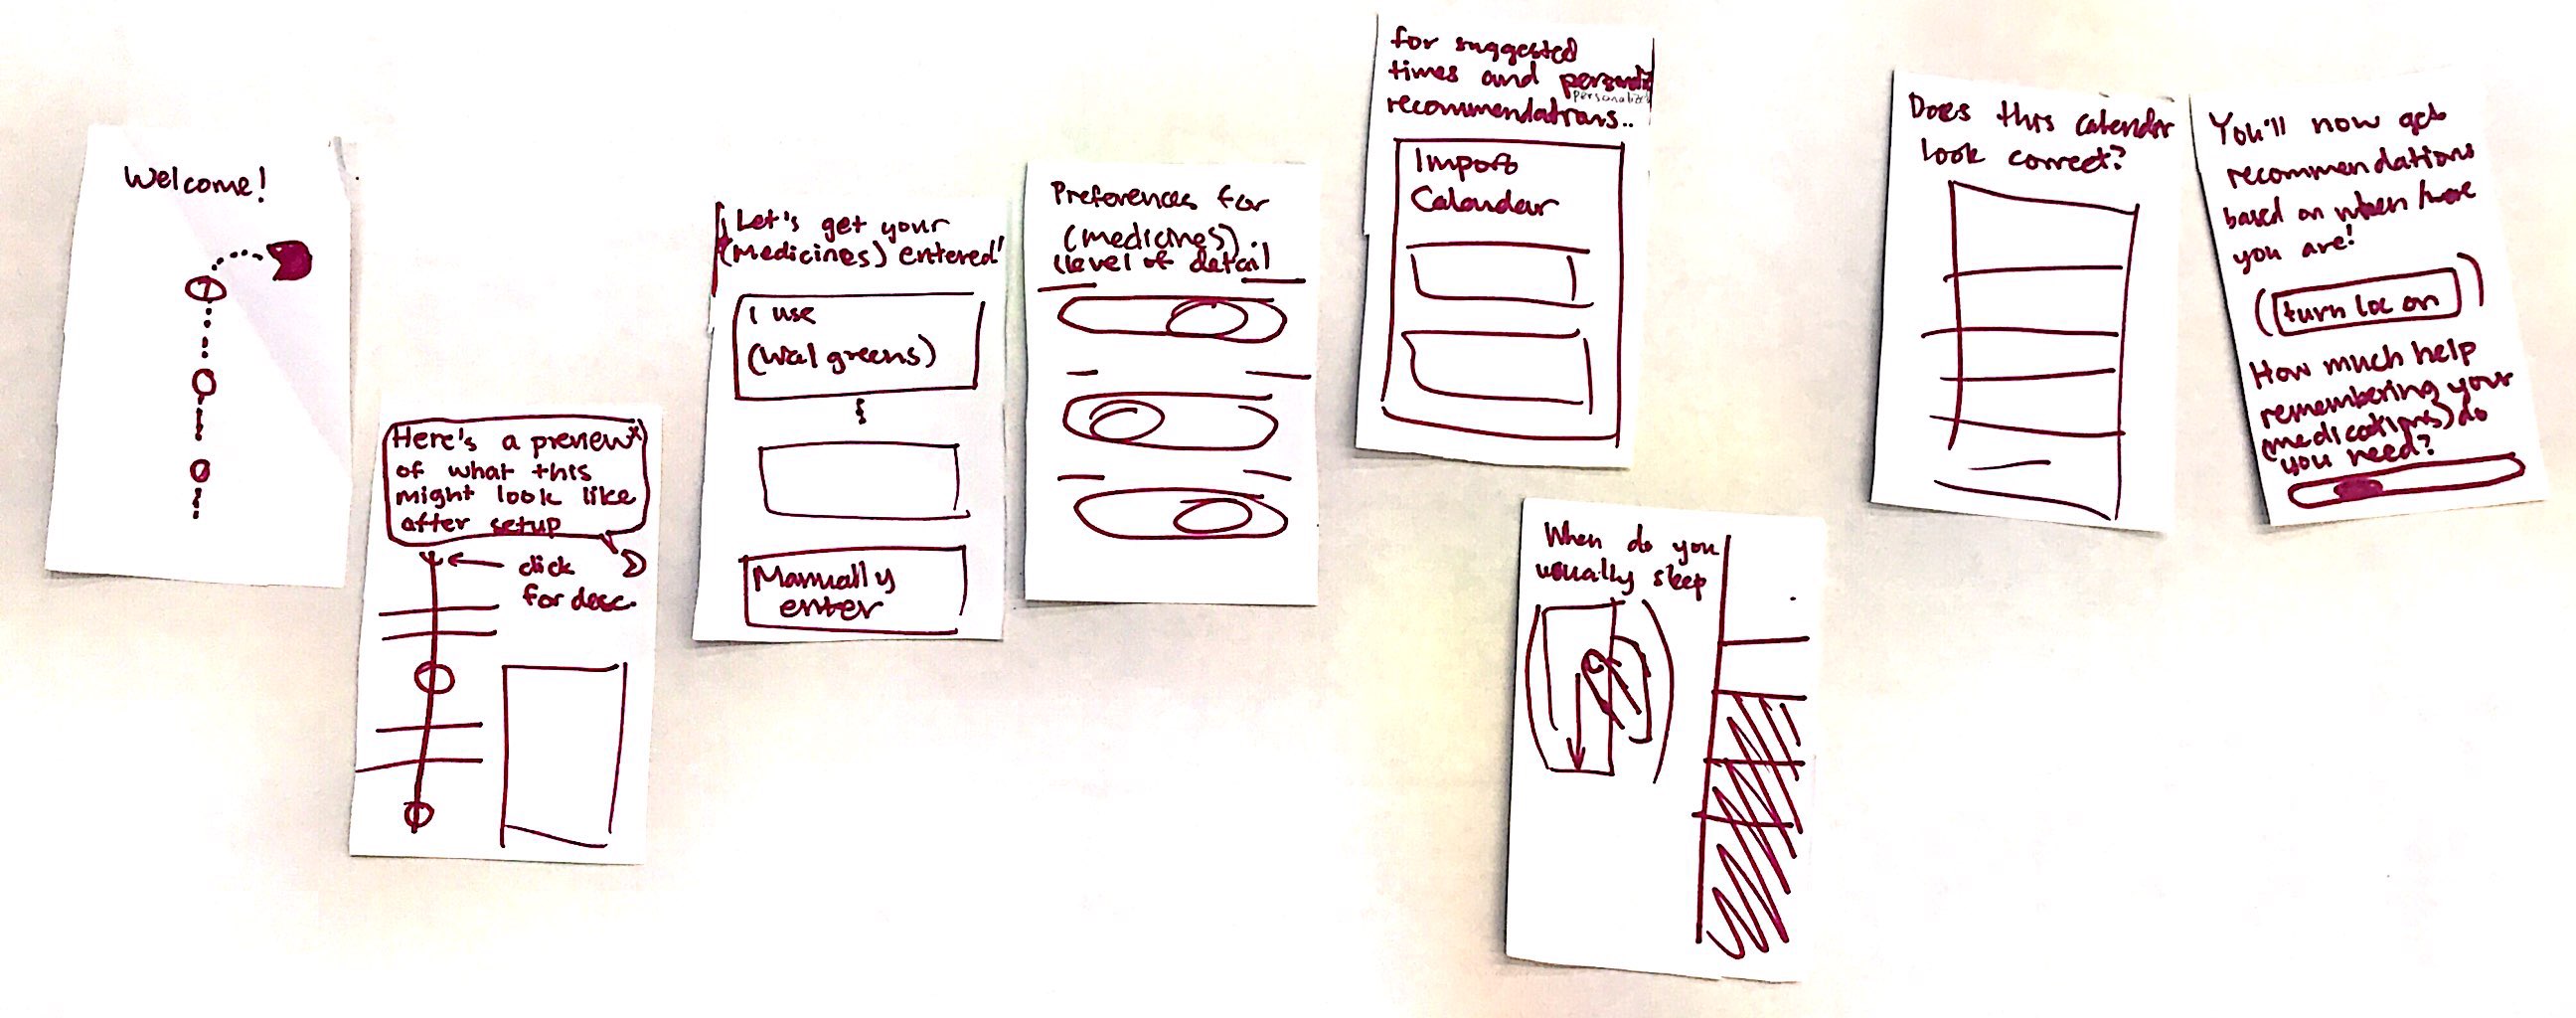 Welcome!
Here's a preview x
of what this
might look like
after setup
click
for desc.
Let's get your
(medicines) entered!
I use
(Walgreens)
Manually
enter
Preferences for
(medicines).
(level of detail
for suggested
times and
personaliz
recommendations..
Import
Calendar
When do you
usually sleep
Does this calendar
look correct?
You'll now get
recommendations
based on when/where
you are!
(turn loc on)
How much help
remembering your
(medications) do
you need?